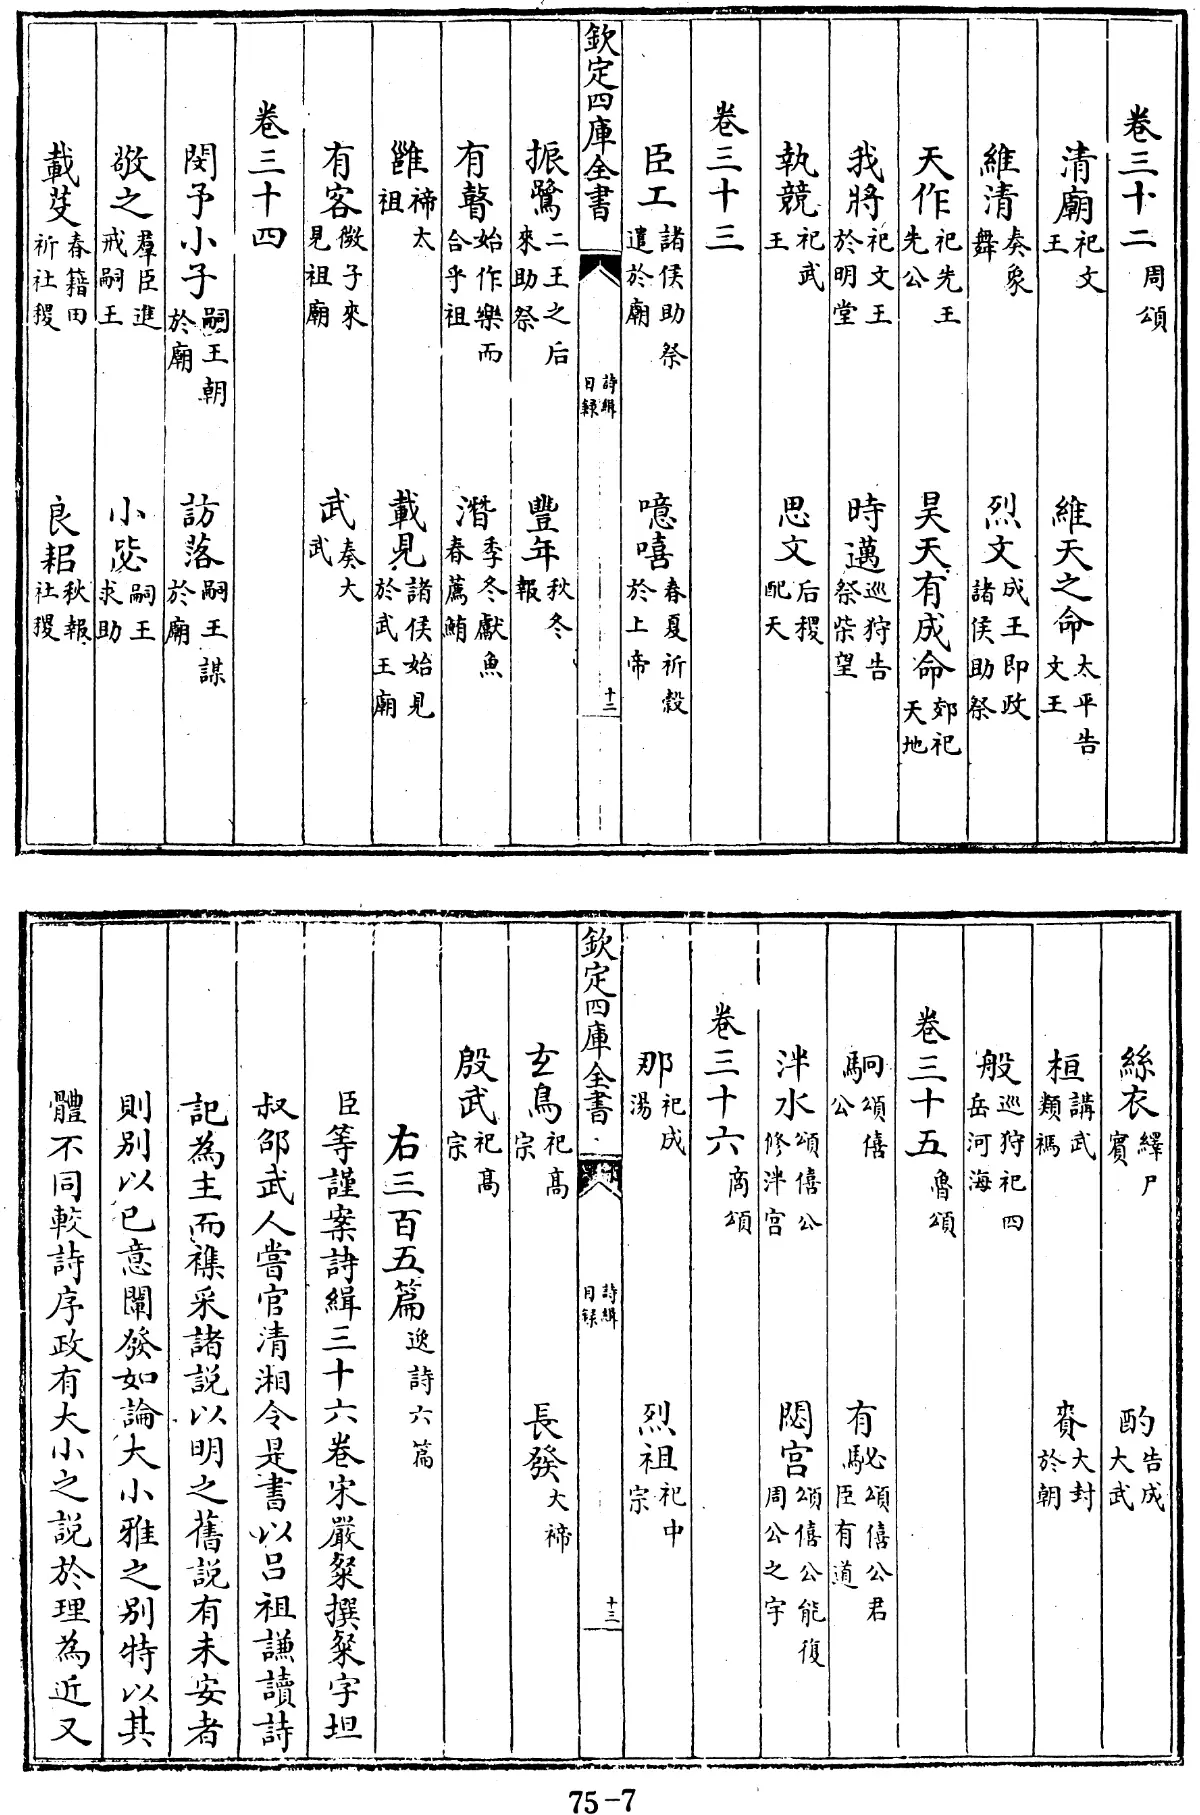 卷三十二周頌
清廟祀文王 維天之命太平告文王
維清奏象舞 烈文成王即政諸侯助祭
天作祀先王先公 昊天有成命郊祀天地
我將祀文王於明堂 時邁巡狩告祭柴望
執競祀武王 思文后稷配天
卷三十三
臣工諸侯助祭遣於廟 噫嘻春夏祈穀於上帝
欽定四庫全書 詩緝目錄 十二
振鷺二王之后來助祭 豐年秋冬報
有瞽始作樂而合乎祖 潛季冬獻魚春薦鮪
雝禘太祖 載見諸侯始見於武王廟
有客微子來見祖廟 武奏大武
卷三十四
閔予小子嗣王朝於廟 訪落嗣王謀於廟
敬之羣臣進戒嗣王 小毖嗣王求助
載芟春籍田祈社稷 良耜秋報社稷
絲衣繹尸賓 酌告成大武
桓講武類禡 賚大封於朝
般巡狩祀四岳河海
卷三十五魯頌
駉頌僖公 有駜頌僖公君臣有道
泮水頌僖公修泮宮 閟宮頌僖公能復周公之宇
卷三十六商頌
那祀成湯 烈祖祀中宗
欽定四庫全書 詩緝目錄 十三
玄鳥祀高宗 長發大禘
殷武祀高宗
右三百五篇逸詩六篇
臣等謹案詩緝三十六卷宋嚴粲撰粲字坦
叔邵武人嘗官清湘令是書以呂祖謙讀詩
記為主而襍采諸説以明之舊説有未安者
則別以已意闡發如論大小雅之別特以其
體不同較詩序政有大小之説於理為近又
75-7